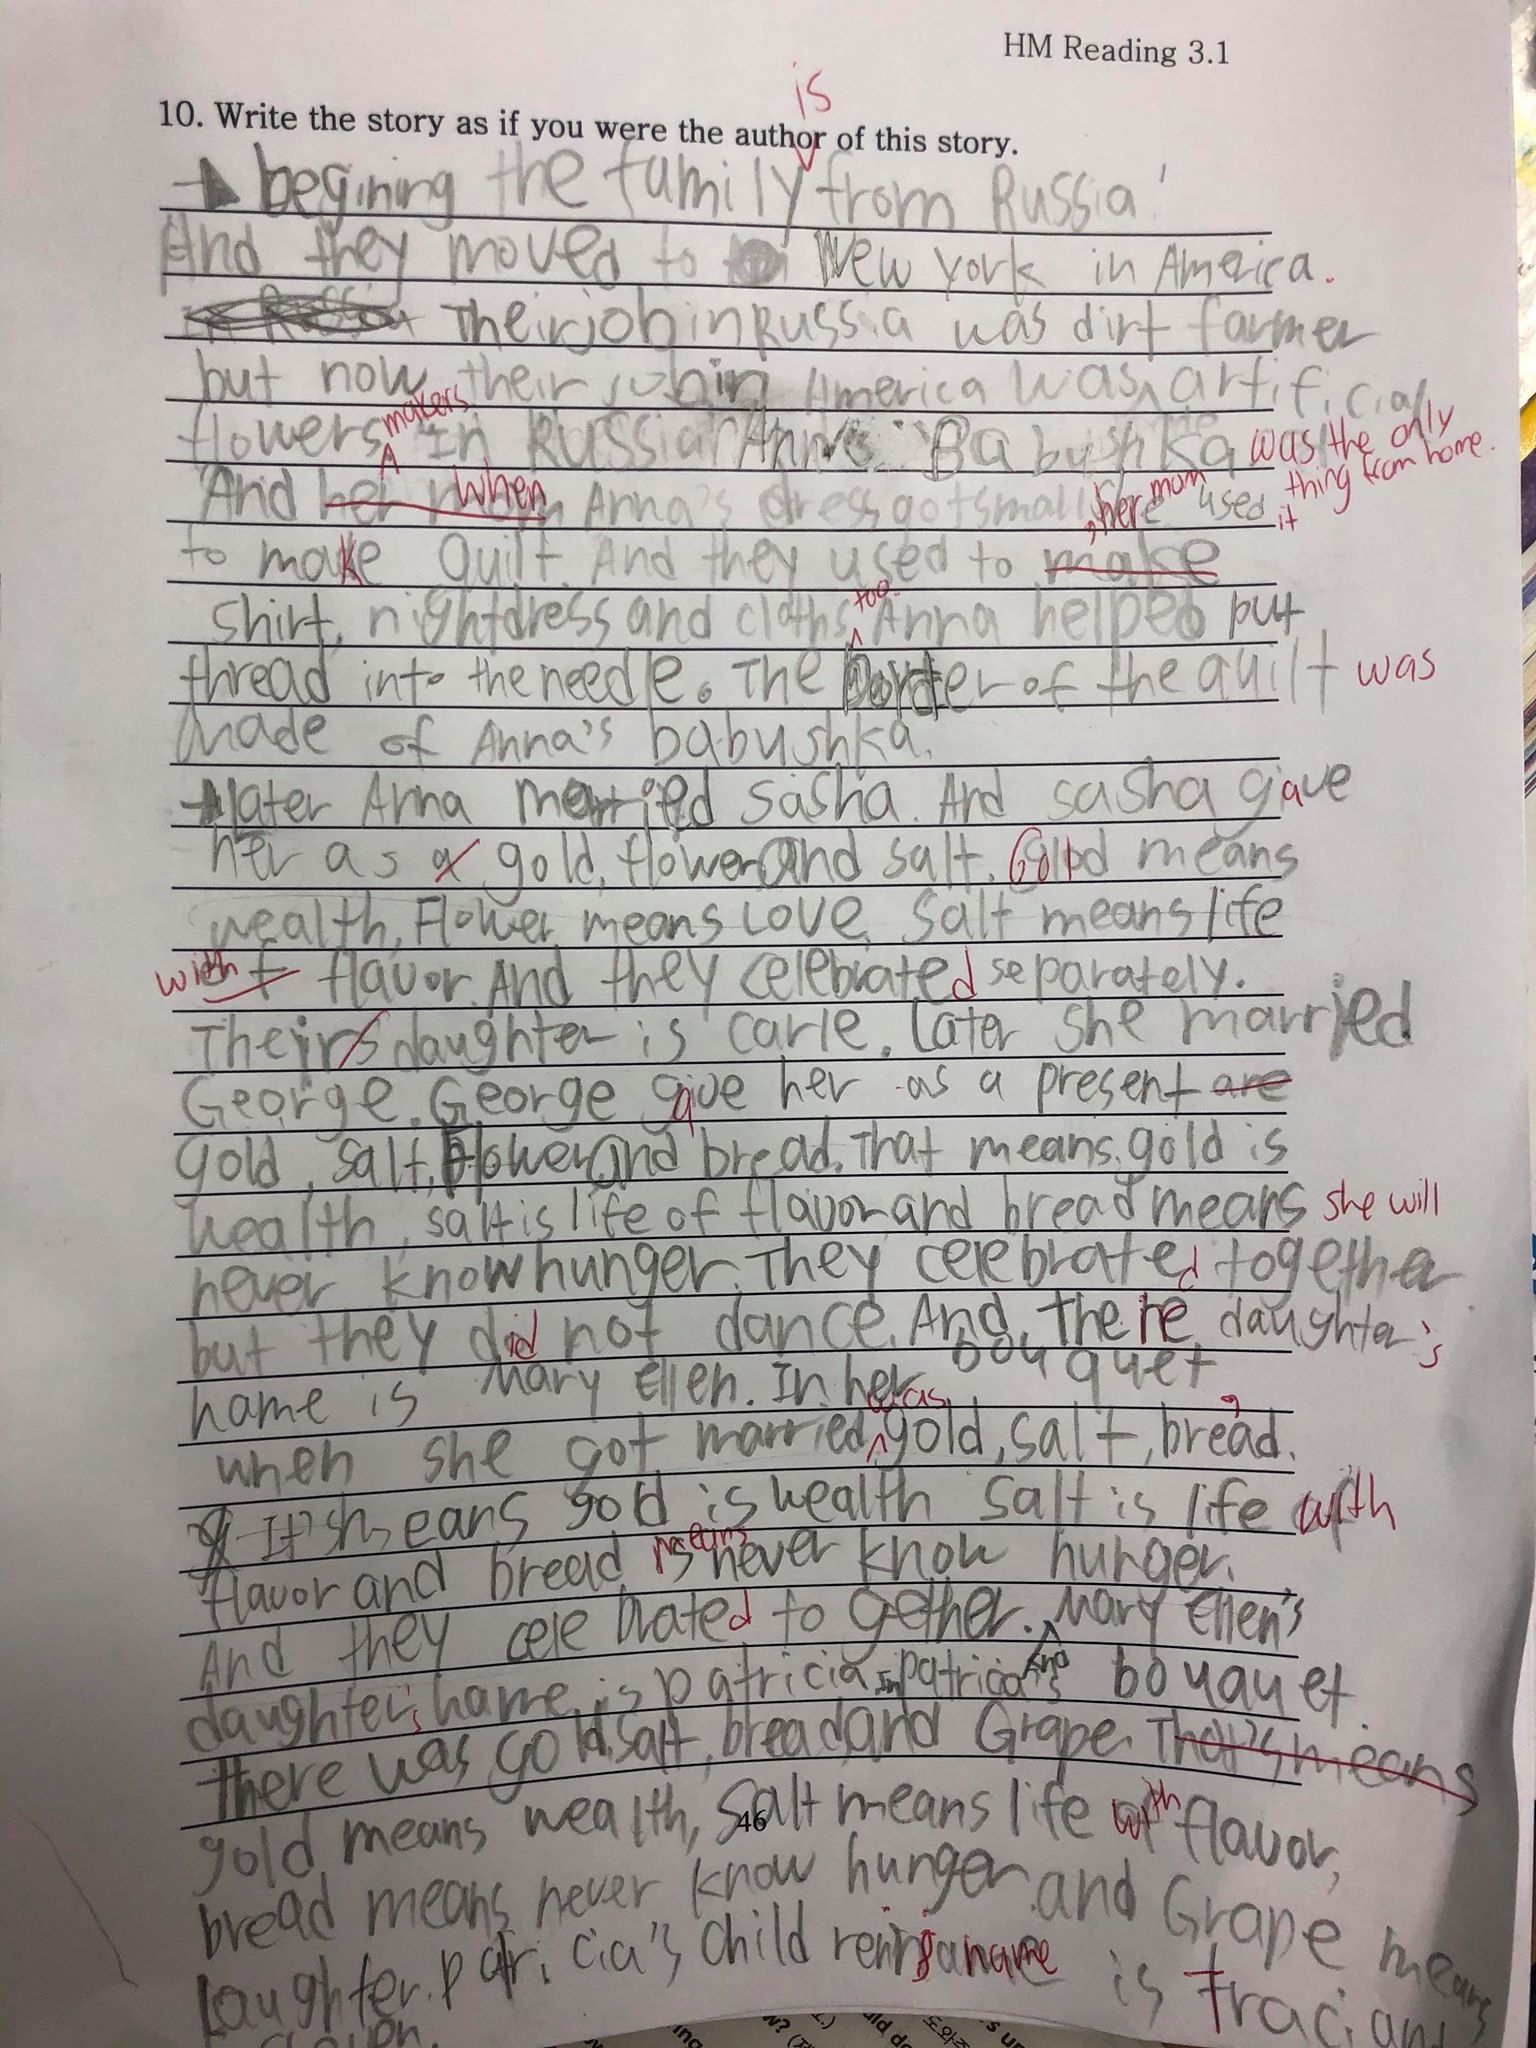 HM Reading 3.1
is
10. Write the story as if you were the author of this story.
begining the family from Russia
And they moved to New york in America.
Their job in Russia was dirt farmer
but now their job in America was artificial
makers
flowers In Russia Anna's Babushka was the only
thing from home.
And when Anna's dress got small, her mom used it
to make quilt. And they used to make
too
shirt, nightdress and cloths Anna helped put
thread into the needle. The border of the quilt was
made of Anna's babushka.
later Anna married Sasha. And sasha gave
her as a gold, flower and salt. Gold means
wealth, Flower means Love, Salt means life
with flavor. And they celebrated separately.
Theirs daughter is carle. Later she married
George. George gave her as a present are
gold, salt, flower and bread. That means gold is
wealth, salt is life of flavor and bread means she will
never know hunger. They celebrated together
but they did not dance. And there daughter's
name is Mary Ellen. In her bouquet
was
when she got married, gold, salt, bread.
It's means gold is wealth salt is life with
means
flavor and bread is never know hunger.
And they celebrated to gether. Mary Ellen's
And
daughter's name is patricia In patricia's bouquet.
there was gold, salt, bread and Grape. That's means
gold means wealth, salt means life with flavor,
46
bread means never know hunger and Grape means
laughter. patricia's child name is traci and